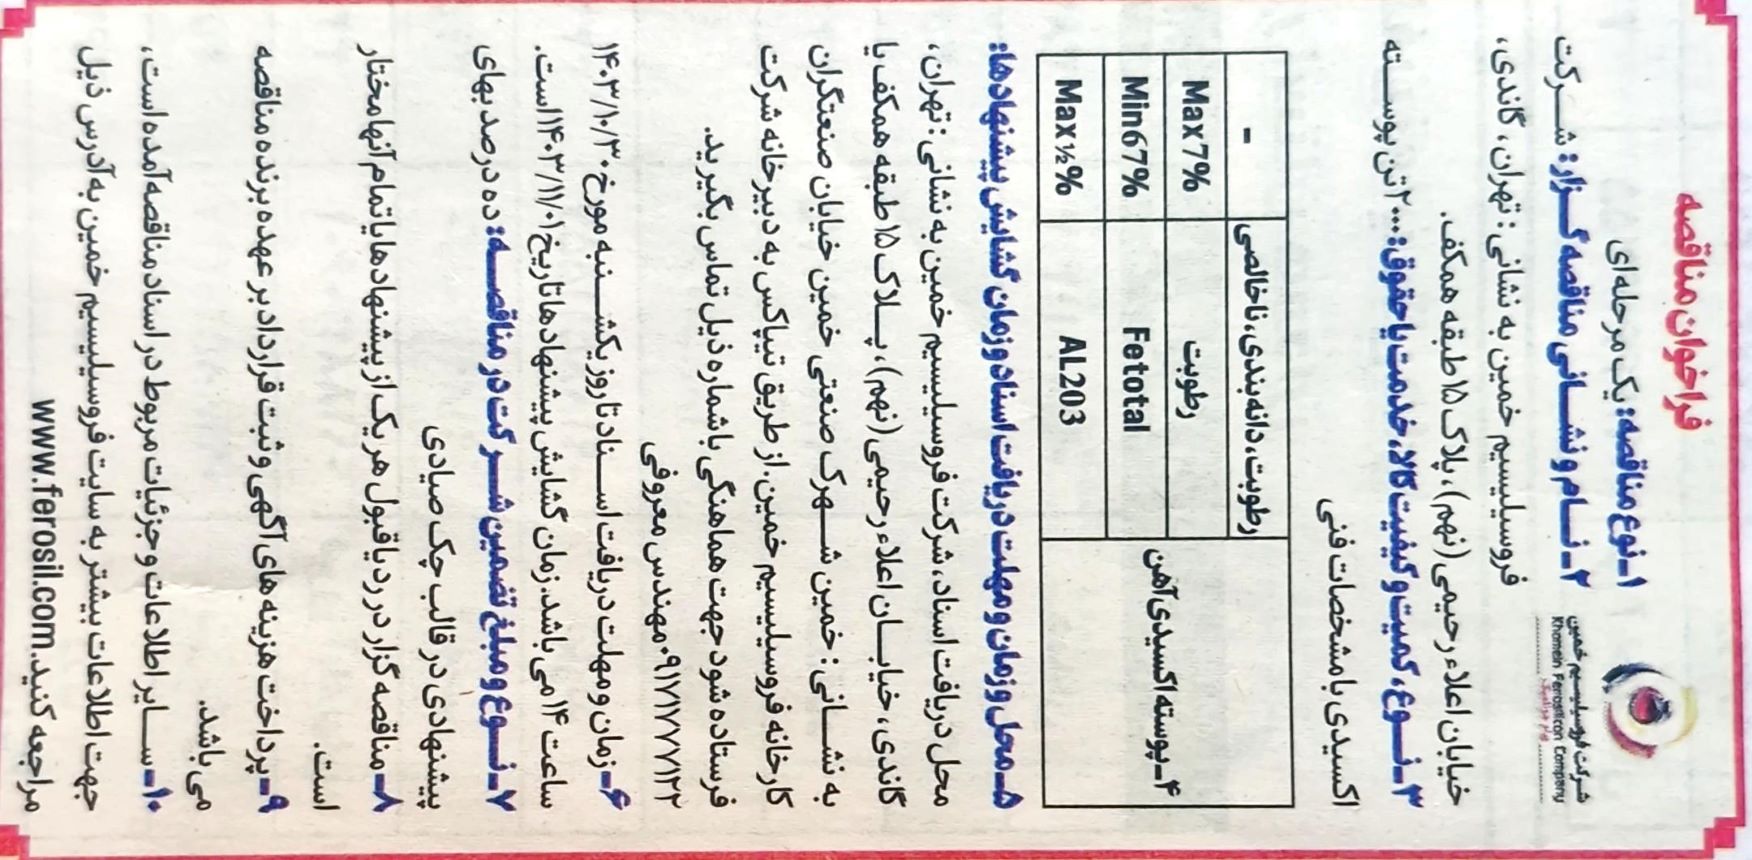 فراخوان مناقصه
شرکت فروسیلیسیم خمین
Khomein Ferosilicon Company
۱ـ نوع مناقصه: یک مرحله‌ای
۲ـ نـــام و نشـــانی مناقصه گـــزار: شـــرکت
فروسیلیسیم خمین به نشانی: تهران، گاندی،
خیابان اعلاء رحیمی (نهم)، پلاک ۱۵ طبقه همکف.
۳ـ نـــوع، کمیت و کیفیت کالا، خدمت یا حقوق: ۲۰۰۰ تن پوســـته
اکسیدی با مشخصات فنی
رطوبت، دانه بندی، ناخالصی -
۴ـ پوسته اکسیدی آهن رطوبت Max7%
Fetotal Min67%
AL203 Max½%
۵ـ محل و زمان و مهلت دریافت اسناد و زمان گشایش پیشنهادها:
محل دریافت اسناد، شرکت فروسیلیسیم خمین به نشانی: تهران،
گاندی، خیابـــان اعلاء رحیمی (نهم)، پـــلاک ۱۵ طبقه همکف یا
به نشـــانی: خمین شـــهرک صنعتی خمین خیابان صنعتگران
کارخانه فروسیلیسیم خمین. از طریق تیپاکس به دبیرخانه شرکت
فرستاده شود جهت هماهنگی با شماره ذیل تماس بگیرید.
۰۹۱۷۱۷۷۷۱۲۲ مهندس معروفی
۶ـ زمان و مهلت دریافت اســـناد تا روز یکشـــنبه مورخ ۱۴۰۳/۱۰/۳۰
ساعت ۱۴ می باشد. زمان گشایش پیشنهادها تاریخ ۱۴۰۳/۱۱/۰۱ است.
۷ـ نـــوع و مبلغ تضمین شـــرکت در مناقصـــه: ده درصد بهای
پیشنهادی در قالب چک صیادی
۸ـ مناقصه گزار در رد یا قبول هر یک از پیشنهادها یا تمام آنها مختار
است.
۹ـ پرداخت هزینه های آگهی و ثبت قرارداد بر عهده برنده مناقصه
می باشد.
۱۰ـ ســـایر اطلاعات و جزئیات مربوط در اسناد مناقصه آمده است،
جهت اطلاعات بیشتر به سایت فروسیلیسیم خمین به آدرس ذیل
مراجعه کنید. www.ferosil.com